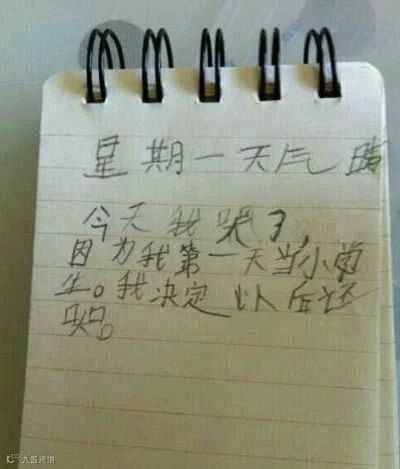 星期一天气晴
今天我哭了,
因为我第一天当小学
生。我决定以后还
哭。
大数跨境